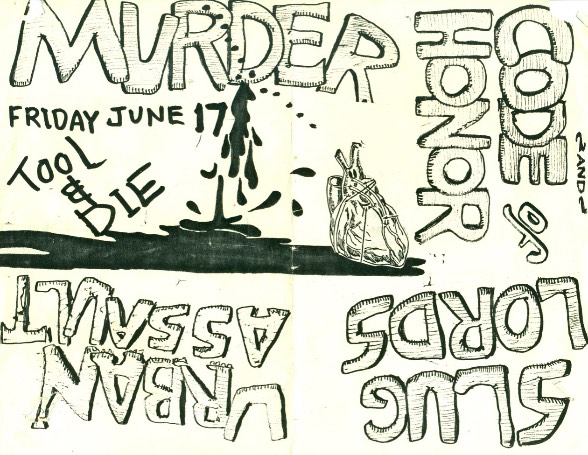 MURDER
FRIDAY JUNE 17
TOOL
&
DIE
CODE
OF
HONOR
~AND~
URBAN
ASSAULT
SLUG
LORDS